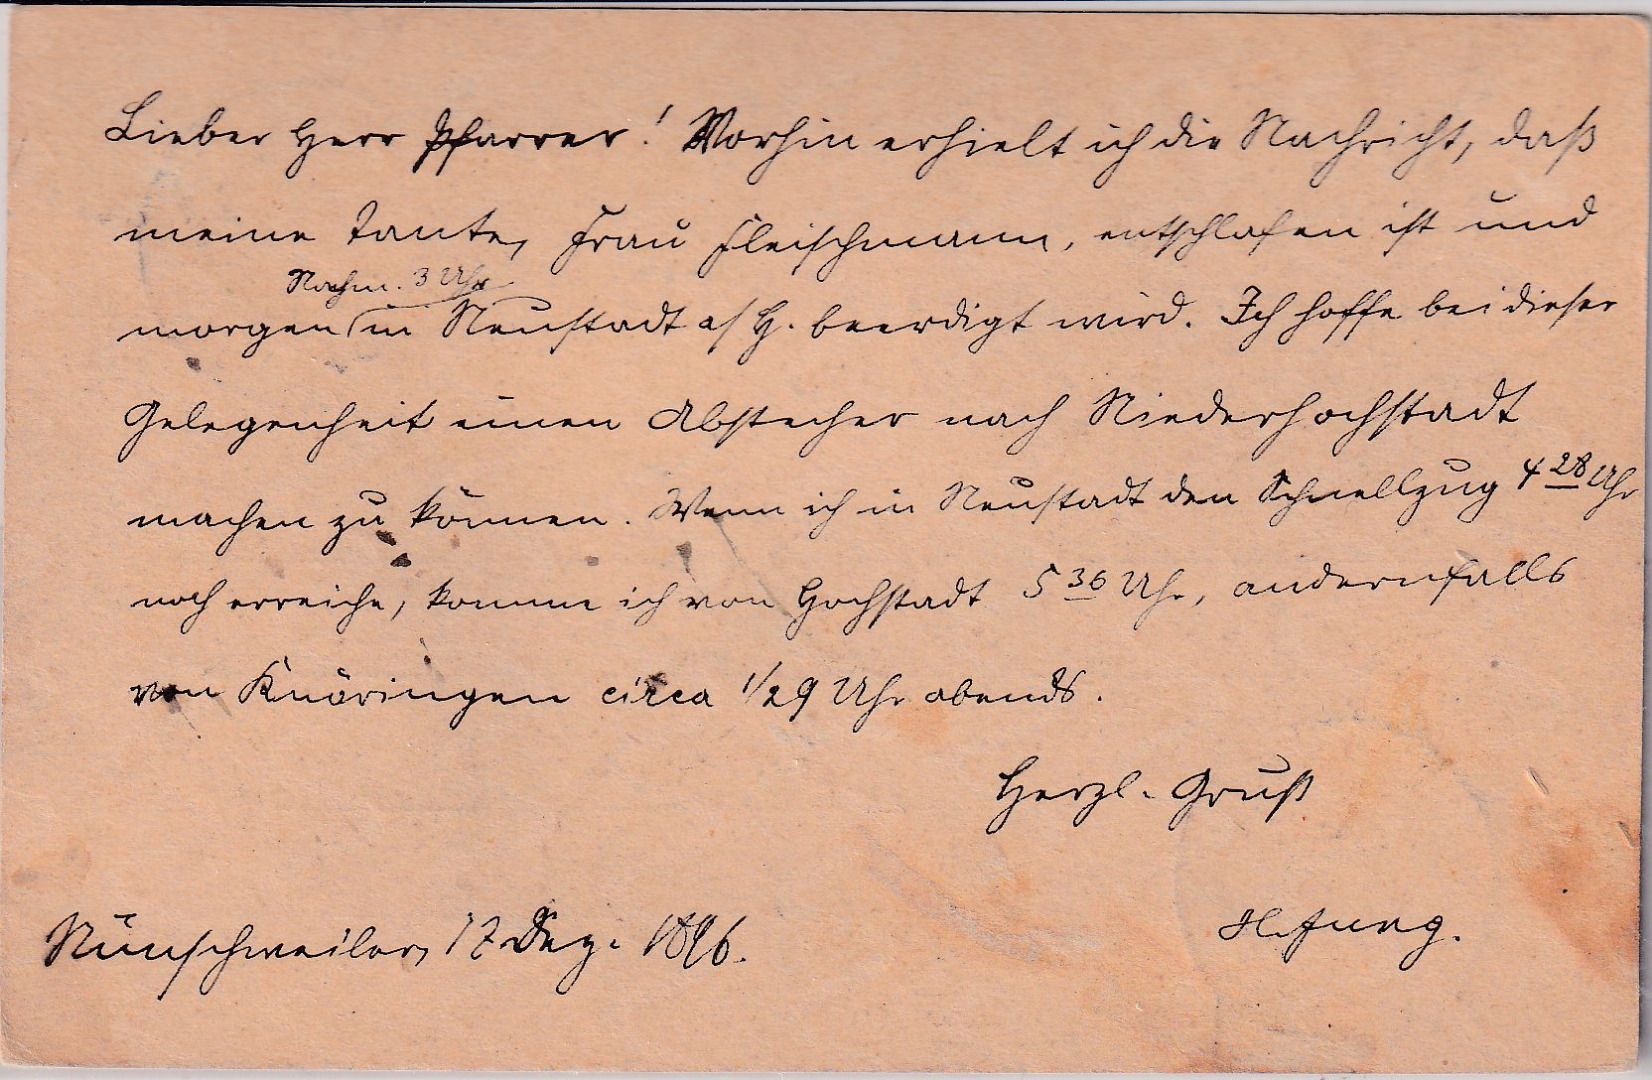 Lieber Herr Pfarrer! Vorhin erhielt ich die Nachricht, daß
meine Tante, Frau Fleischmann, entschlafen ist und
Nachm. 3 Uhr
morgen in Neustadt a/H. beerdigt wird. Ich hoffe bei dieser
Gelegenheit einen Abstecher nach Niederhochstadt
machen zu können. Wenn ich in Neustadt den Schnellzug 4 28 Uhr
noch erreiche, komme ich von Hochstadt 5 36 Uhr, andernfalls
von Knöringen circa 1/29 Uhr abends.
Herzl. Gruß
Nünschweiler, 17 Dez. 1896.